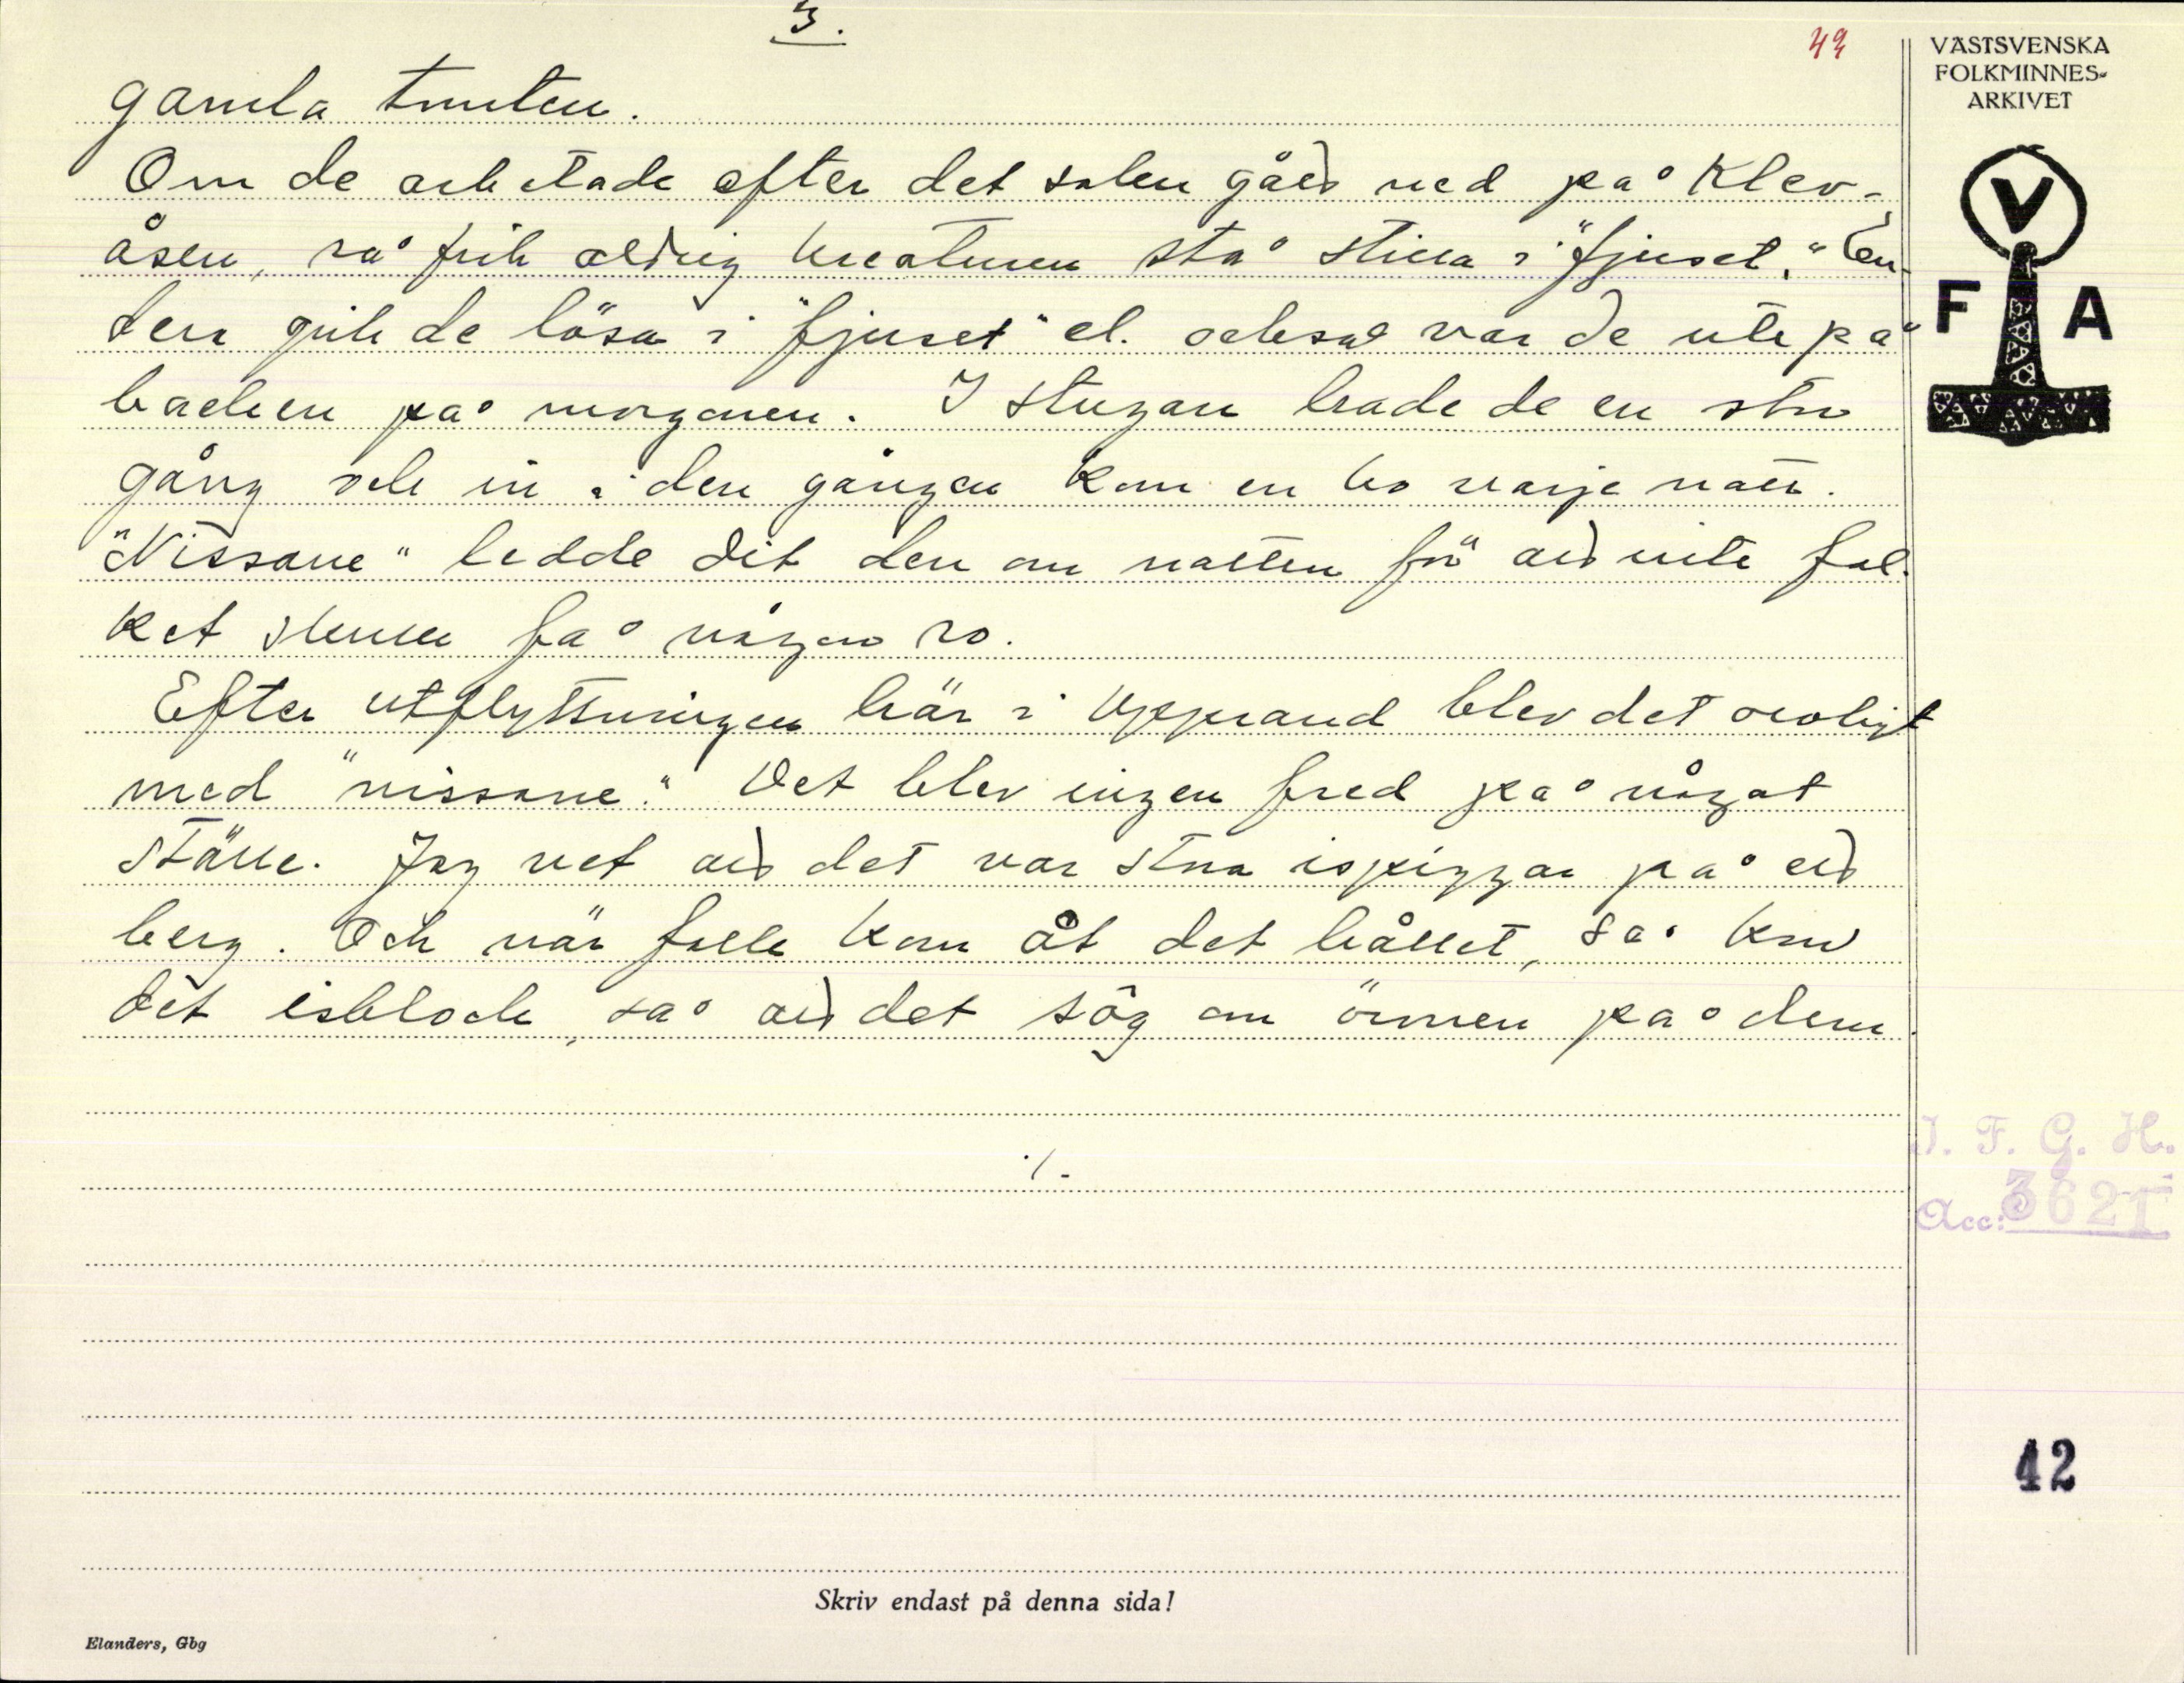 3.
42
VÄSTSVENSKA
FOLKMINNES-
ARKIVET
gamla tomten.
Om de arbetade efter det solen gått ned på Klev-
åsen, så fick aldrig kreaturen stå stilla i "fjuset." En-
ten gick de lösa i "fjuset" el. också var de ute på
backen på morgonen. I stugan hade de en stor
gång och in i den gången kom en ko varje natt.
"Nissane" ledde dit den om natten för att inte fol-
ket skulle få någon ro.
Efter utflyttningen här i Upprand blev det oroligt
med "nissane." Det blev ingen fred på något
ställe. Jag vet att det var stora ispiggar på ett
berg. Och när folk kom åt det hållet, så kom
det isblock, så att det sög om öronen på dem.
./-
V
F A
I. F. G. H.
Acc: 3621
42
Skriv endast på denna sida!
Elanders, Gbg